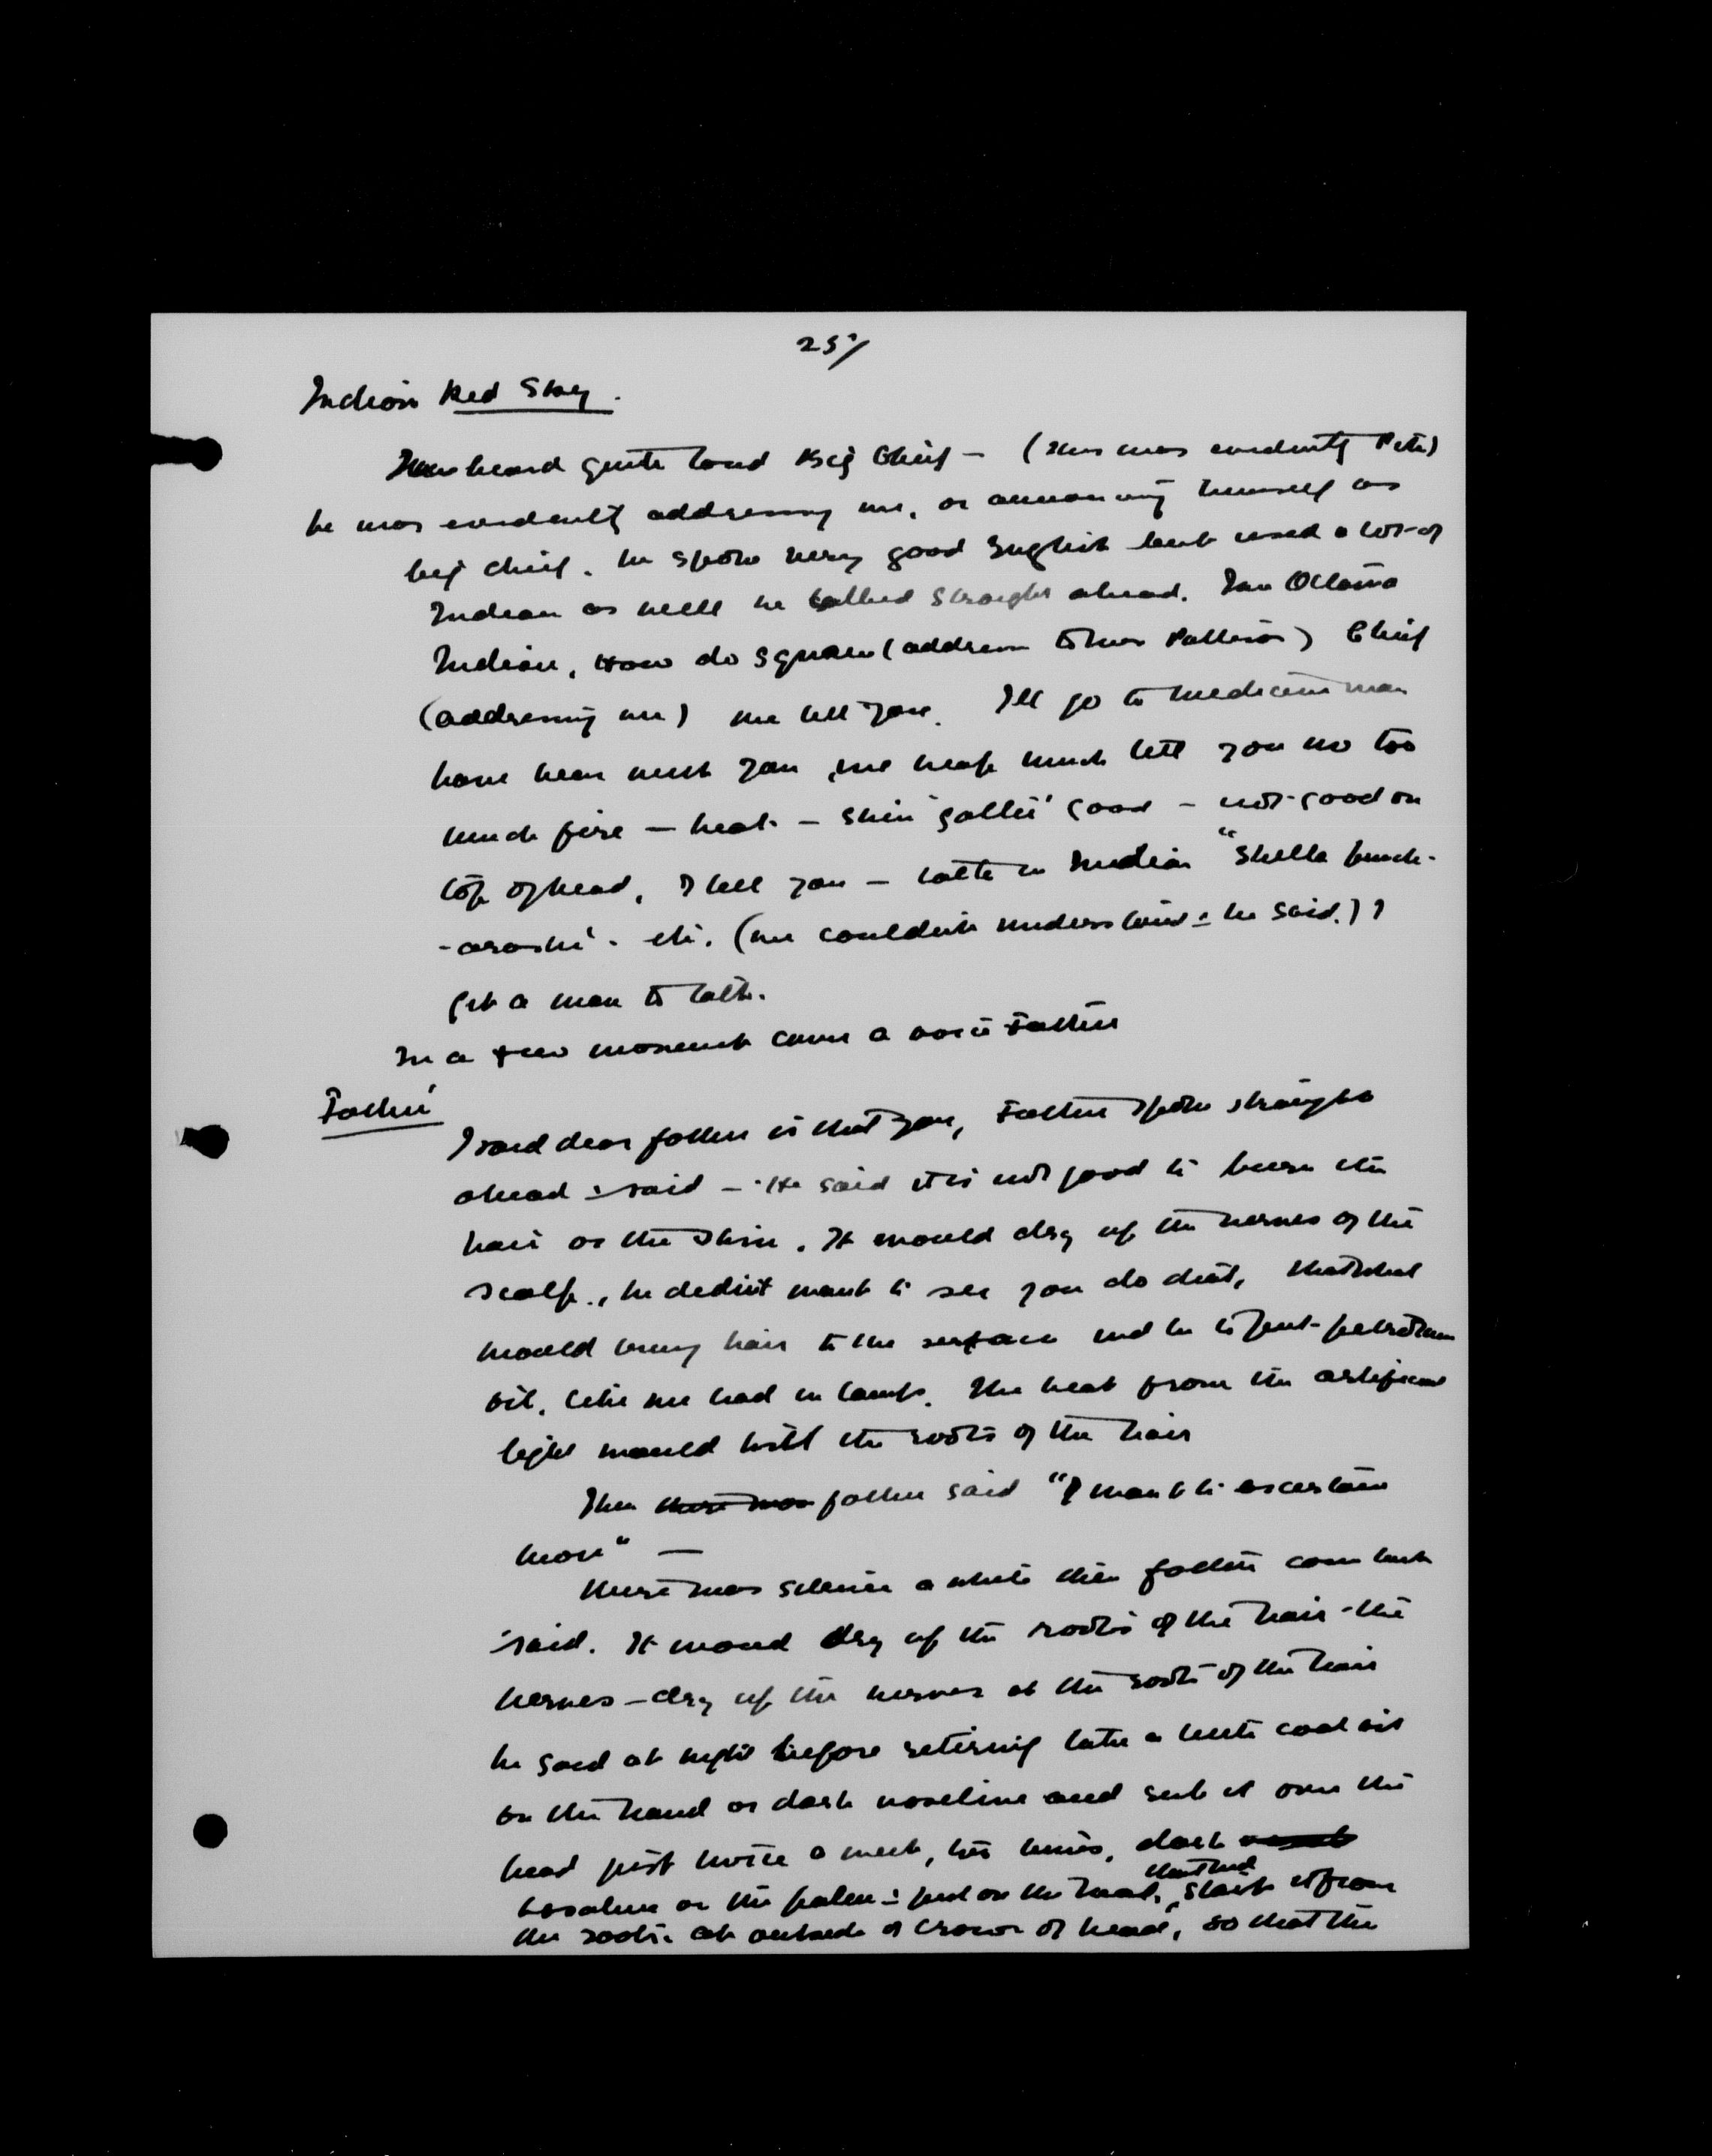 25/
Indian Red Sky.
heard quite loud Big Chief — (this was evidently Pete)
he was evidently addressing me, or announcing himself as
big chief. he spoke very good English but used a lot of
Indian as well he talked straight ahead. I am Ottawa
Indian, How do squaw (address to Mrs Patterson) Chief
(addressing me) me tell you. I'll go to medicine man
have hear with you, me heap much tell you no too
much fire — heat — skin good — not good on
top of head, I tell you — talk in Indian "Shella
etc. (we couldn't understand & he said.) I
get a man to talk.
In a few moments came a voice Father
Father
I said dear father is that you, Father spoke straight
ahead & said — He said it is not good to burn the
hair or the skin. It would dry up the nerves of the
scalp., he didn't want to see you do that, that what
would bring hair to the surface would be to put petroleum
oil, like we had in lamps. The heat from the artificial
light would kill the roots of the hair
Then father said "I want to ascertain
more" —
there was silence a while then father came back
& said. It would dry up the roots of the hair - the
nerves — dry up the nerves at the roots of the hair
he said at night before retiring take a little coal oil
on the hand or dark vaseline and rub it over the
head just twice a week, two times, dark
vaseline on the palm & put on the head, start it from
the roots at outside of crown of head, so that the